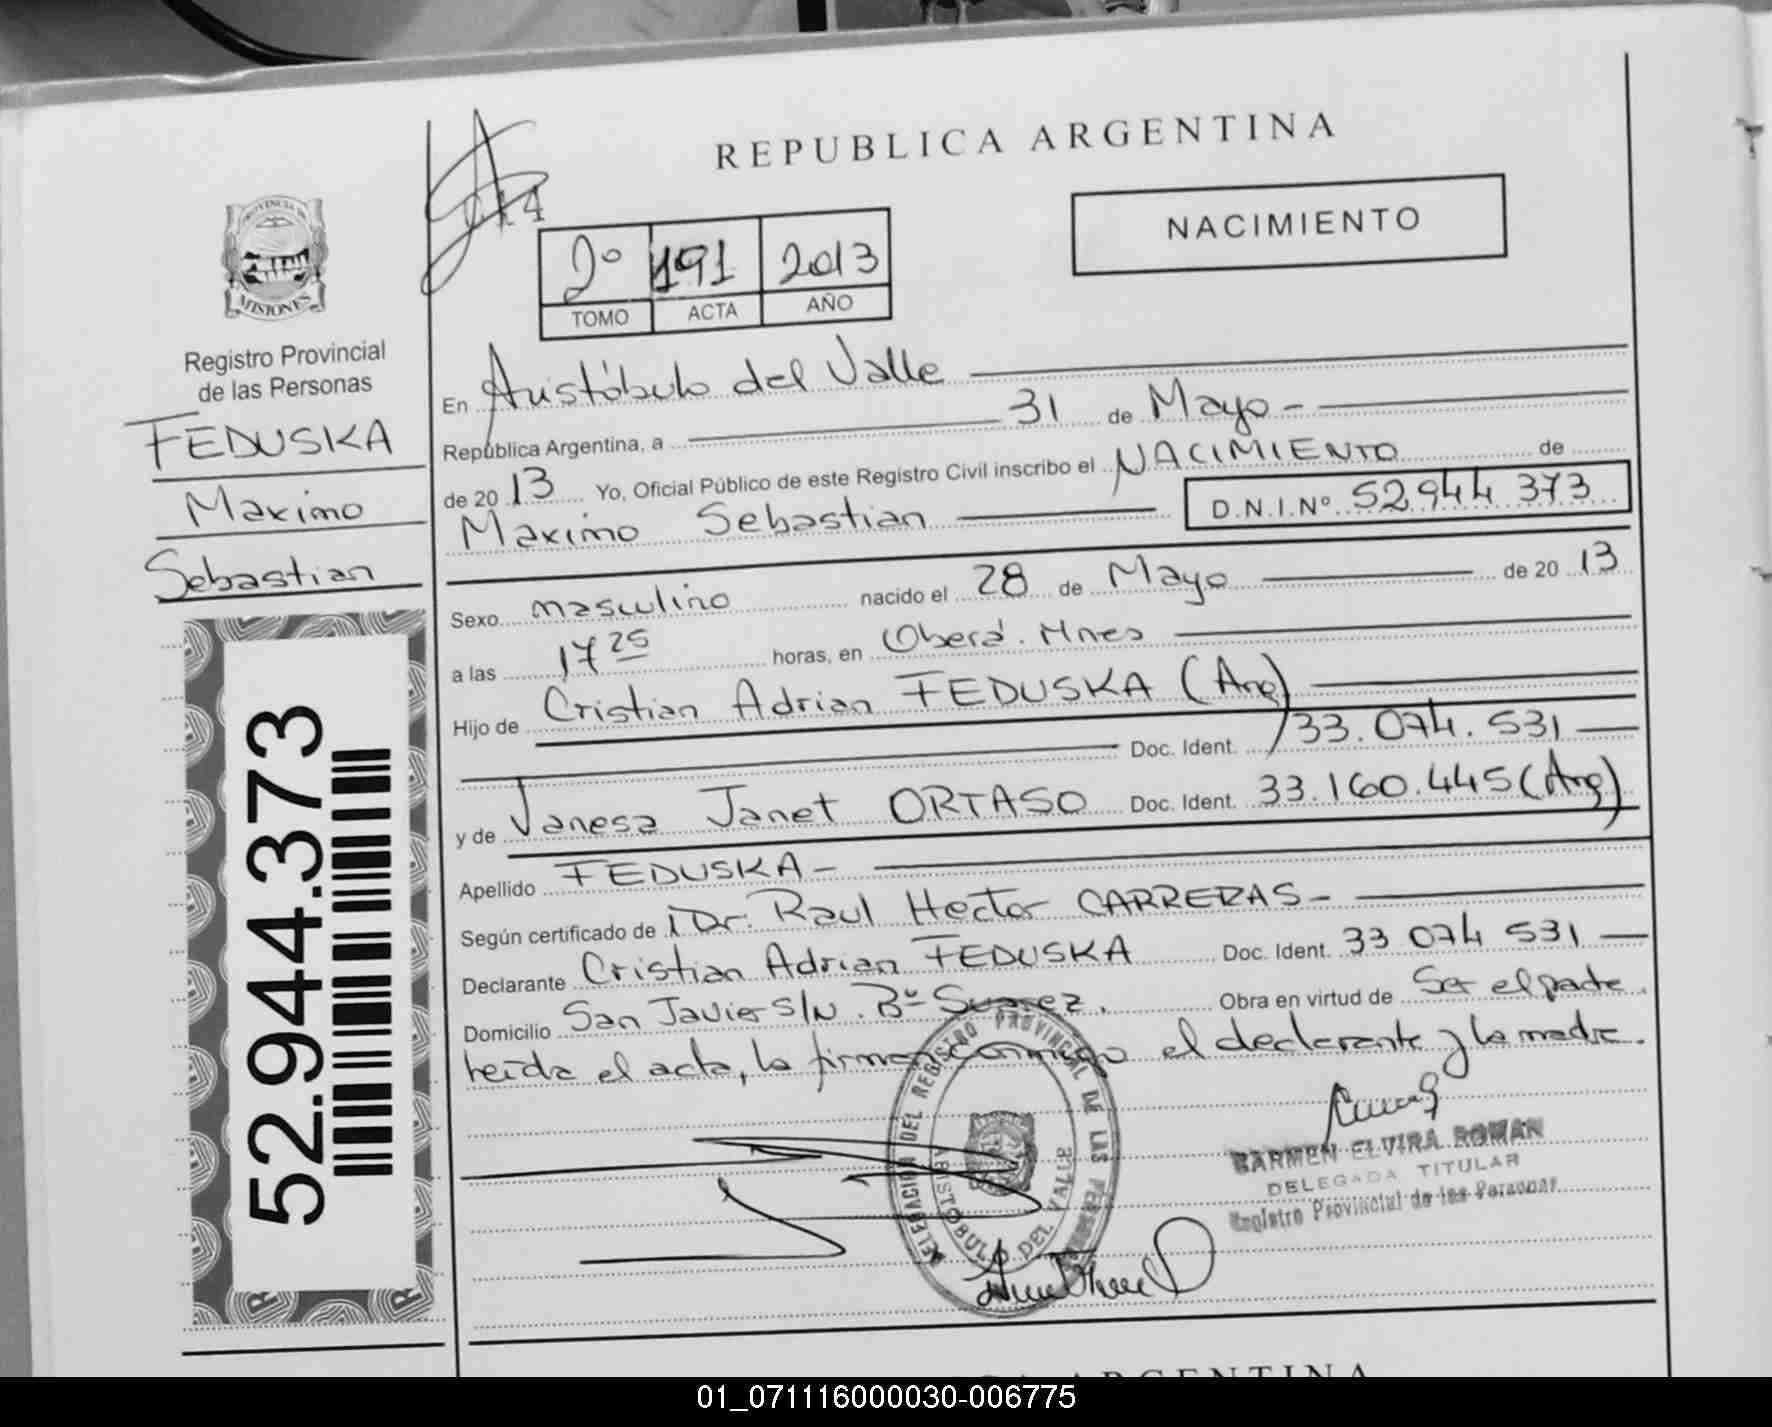 REPUBLICA ARGENTINA
NACIMIENTO
PROVINCIA DE
MISIONES
Registro Provincial
de las Personas
FEDUSKA
Maximo
Sebastian
52.944.373
2º 191 2013
TOMO ACTA AÑO
En Aristóbulo del Valle
República Argentina, a 31 de Mayo -
de 20 13 Yo, Oficial Público de este Registro Civil inscribo el NACIMIENTO de
Maximo Sebastian D.N.I.Nº 52944 373
Sexo masculino nacido el 28 de Mayo de 20 13
a las 17 25 horas, en Oberá. Mnes
Hijo de Cristian Adrian FEDUSKA (Arg)
Doc. Ident. 33.074.531
y de Vanesa Janet ORTASO Doc. Ident. 33.160.445 (Arg)
Apellido FEDUSKA -
Según certificado de Dr. Raul Hector CARRERAS -
Declarante Cristian Adrian FEDUSKA Doc. Ident. 33 074 531
Domicilio San Javier S/N. Bº Suarez. Obra en virtud de Ser el padre.
Leída el acta, la firman conmigo el declarante y la madre.
DELEGACION DEL REGISTRO PROVINCIAL DE LAS PERSONAS
ARISTOBULO DEL VALLE
CARMEN ELVIRA ROMAN
DELEGADA TITULAR
Registro Provincial de las Personas
01_071116000030-006775